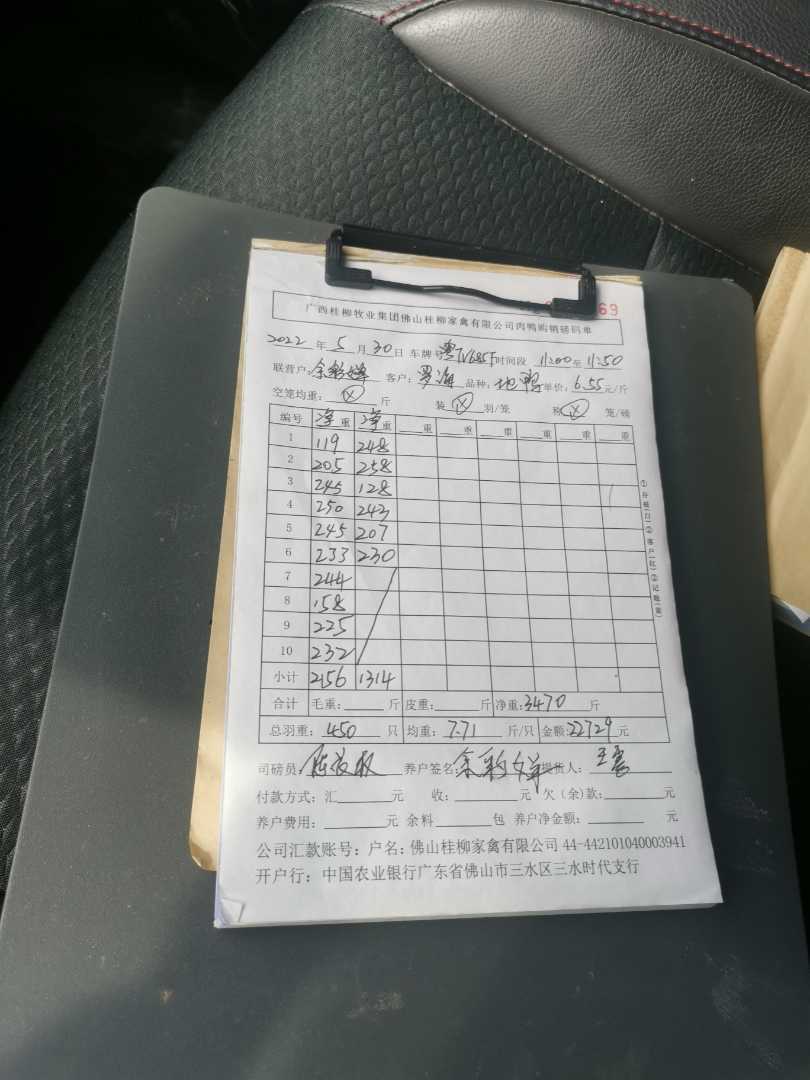 69
广西桂柳牧业集团佛山桂柳家禽有限公司肉鸭购销磅码单
2022 年 5 月 30 日 车牌号 粤TV685F 时间段 11:00 至 11:50
联营户: 余彩婵 客户: 罗海 品种: 地鸭 单价: 6.55 元/斤
空笼均重: 斤 装 羽/笼 称 笼/磅
编号 净重 净重 重 重 重 重 重 重
1 119 248
2 205 258
3 245 128
4 250 243
5 245 207
6 233 230
7 244
8 158
9 225
10 232
小计 2156 1314
合计 毛重: 斤 皮重: 斤 净重: 3470 斤
总羽重: 450 只 均重: 7.71 斤/只 金额: 22729 元
司磅员: 养户签名: 余彩婵 提货人:
付款方式: 汇 元 收: 元 欠(余)款: 元
养户费用: 元 余料 包 养户净金额: 元
公司汇款账号: 户名: 佛山桂柳家禽有限公司 44-442101040003941
开户行: 中国农业银行广东省佛山市三水区三水时代支行